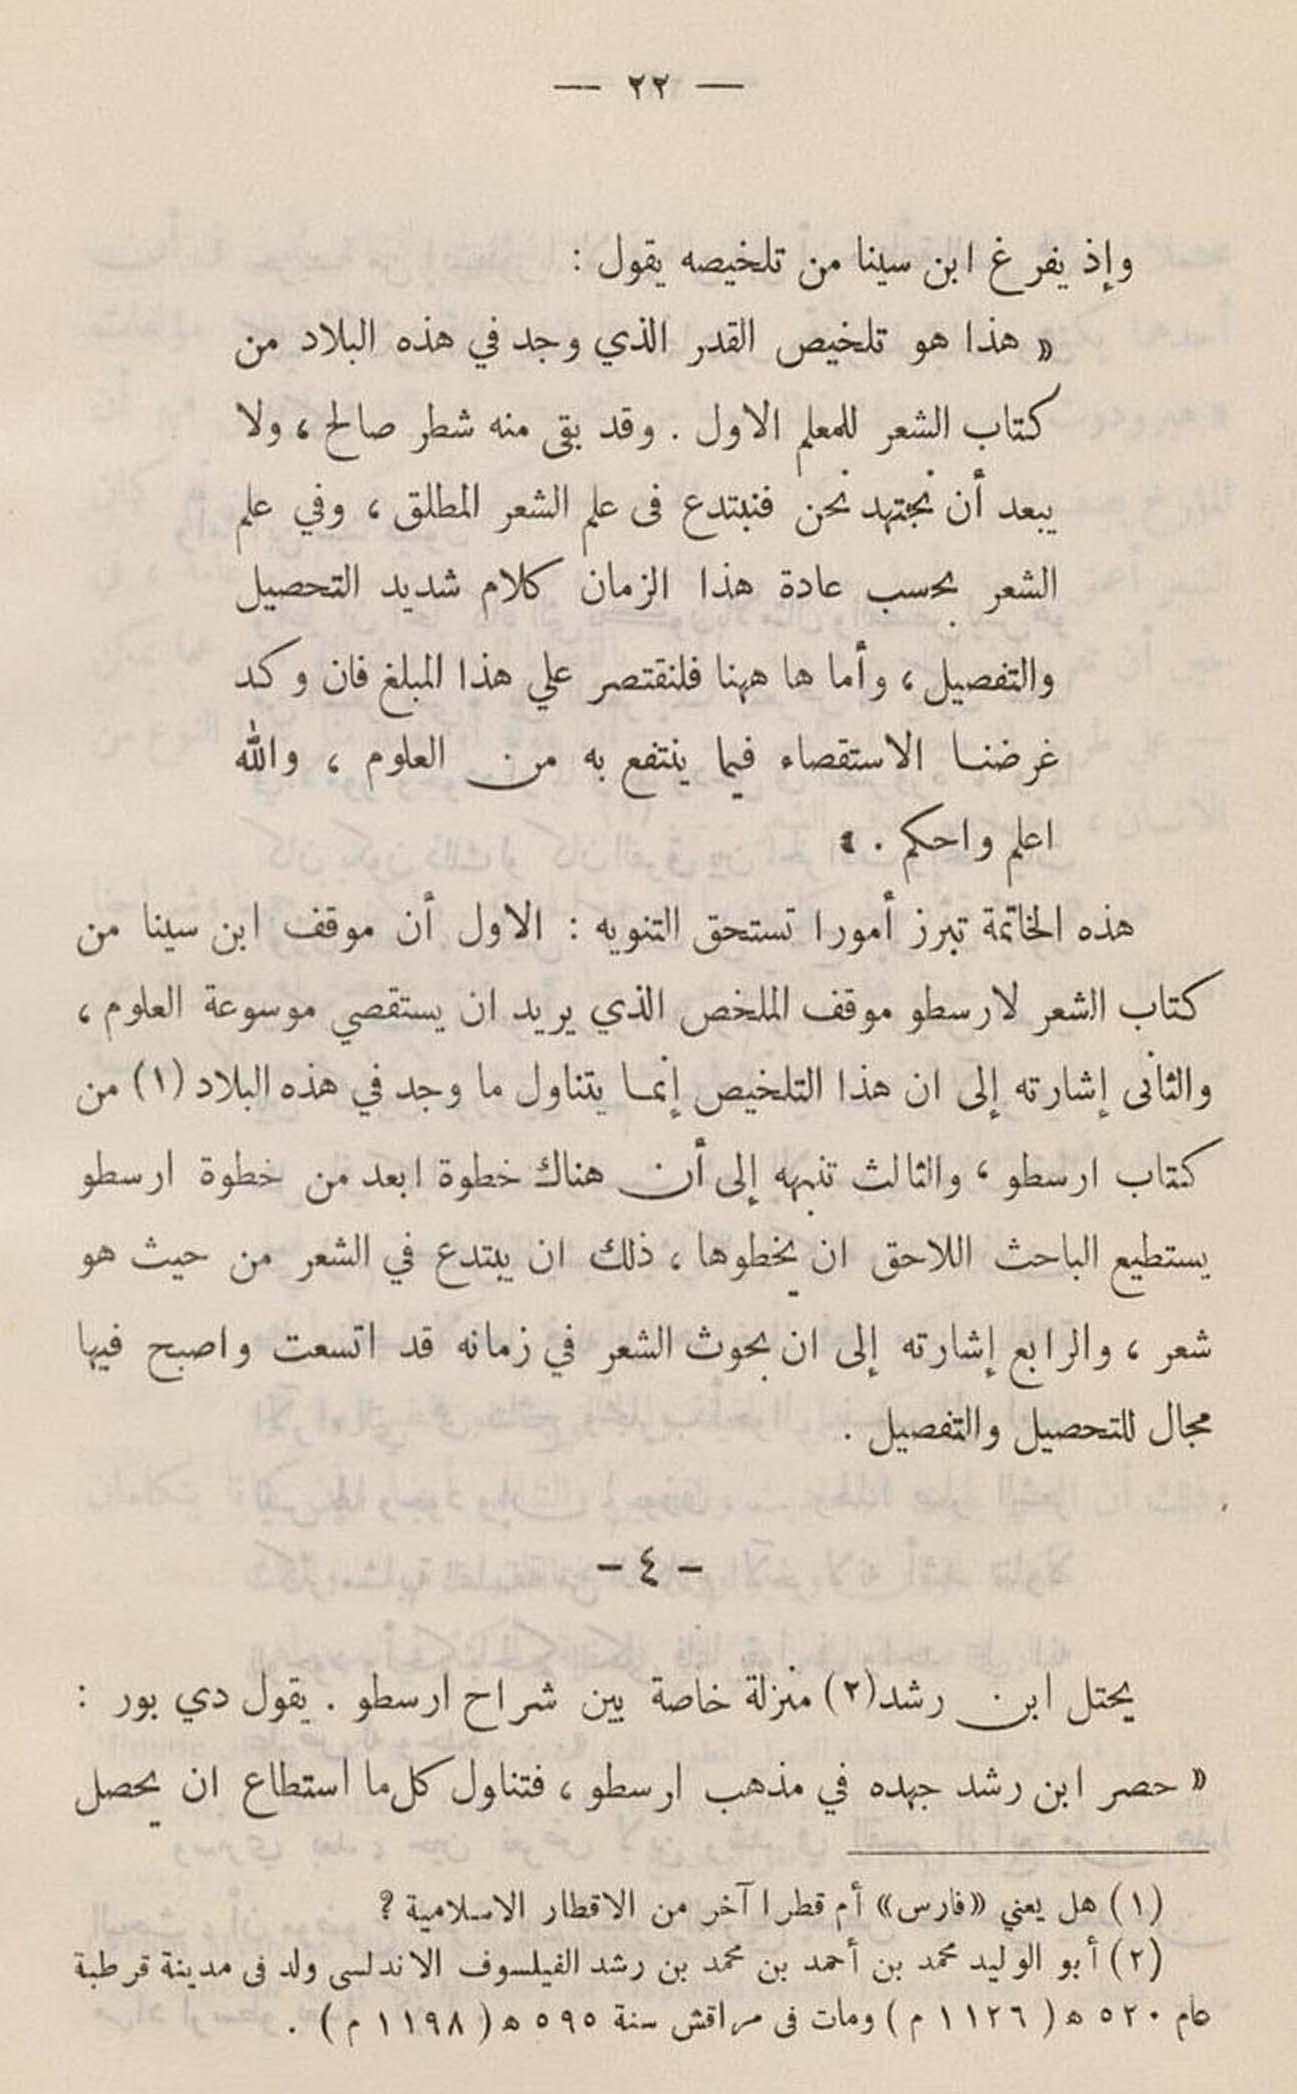 — ٢٢ —
وإذ يفرغ ابن سينا من تلخيصه يقول :
« هذا هو تلخيص القدر الذي وجد في هذه البلاد من
كتاب الشعر للمعلم الاول . وقد بقى منه شطر صالح ، ولا
يبعد أن نجتهد نحن فنبتدع فى علم الشعر المطلق ، وفي علم
الشعر بحسب عادة هذا الزمان كلام شديد التحصيل
والتفصيل ، وأما ها ههنا فلنقتصر علي هذا المبلغ فان وكد
غرضنا الاستقصاء فيما ينتفع به من العلوم ، والله
اعلم واحكم . »
هذه الخاتمة تبرز أمورا تستحق التنويه : الاول أن موقف ابن سينا من
كتاب الشعر لارسطو موقف الملخص الذي يريد ان يستقصي موسوعة العلوم ،
والثانى إشارته إلى ان هذا التلخيص إنما يتناول ما وجد في هذه البلاد (١) من
كتاب ارسطو ، والثالث تنبهه إلى أن هناك خطوة ابعد من خطوة ارسطو
يستطيع الباحث اللاحق ان يخطوها ، ذلك ان يبتدع في الشعر من حيث هو
شعر ، والرابع إشارته إلى ان بحوث الشعر في زمانه قد اتسعت واصبح فيها
مجال للتحصيل والتفصيل .
- ٤ -
يحتل ابن رشد(٢) منزلة خاصة بين شراح ارسطو . يقول دي بور :
« حصر ابن رشد جهده في مذهب ارسطو ، فتناول كل ما استطاع ان يحصل
(١) هل يعني «فارس» أم قطرا آخر من الاقطار الاسلامية ؟
(٢) أبو الوليد محمد بن أحمد بن محمد بن رشد الفيلسوف الاندلسى ولد فى مدينة قرطبة
عام ٥٢٠ ه ( ١١٢٦ م ) ومات فى مراقش سنة ٥٩٥ ه ( ١١٩٨ م ) .